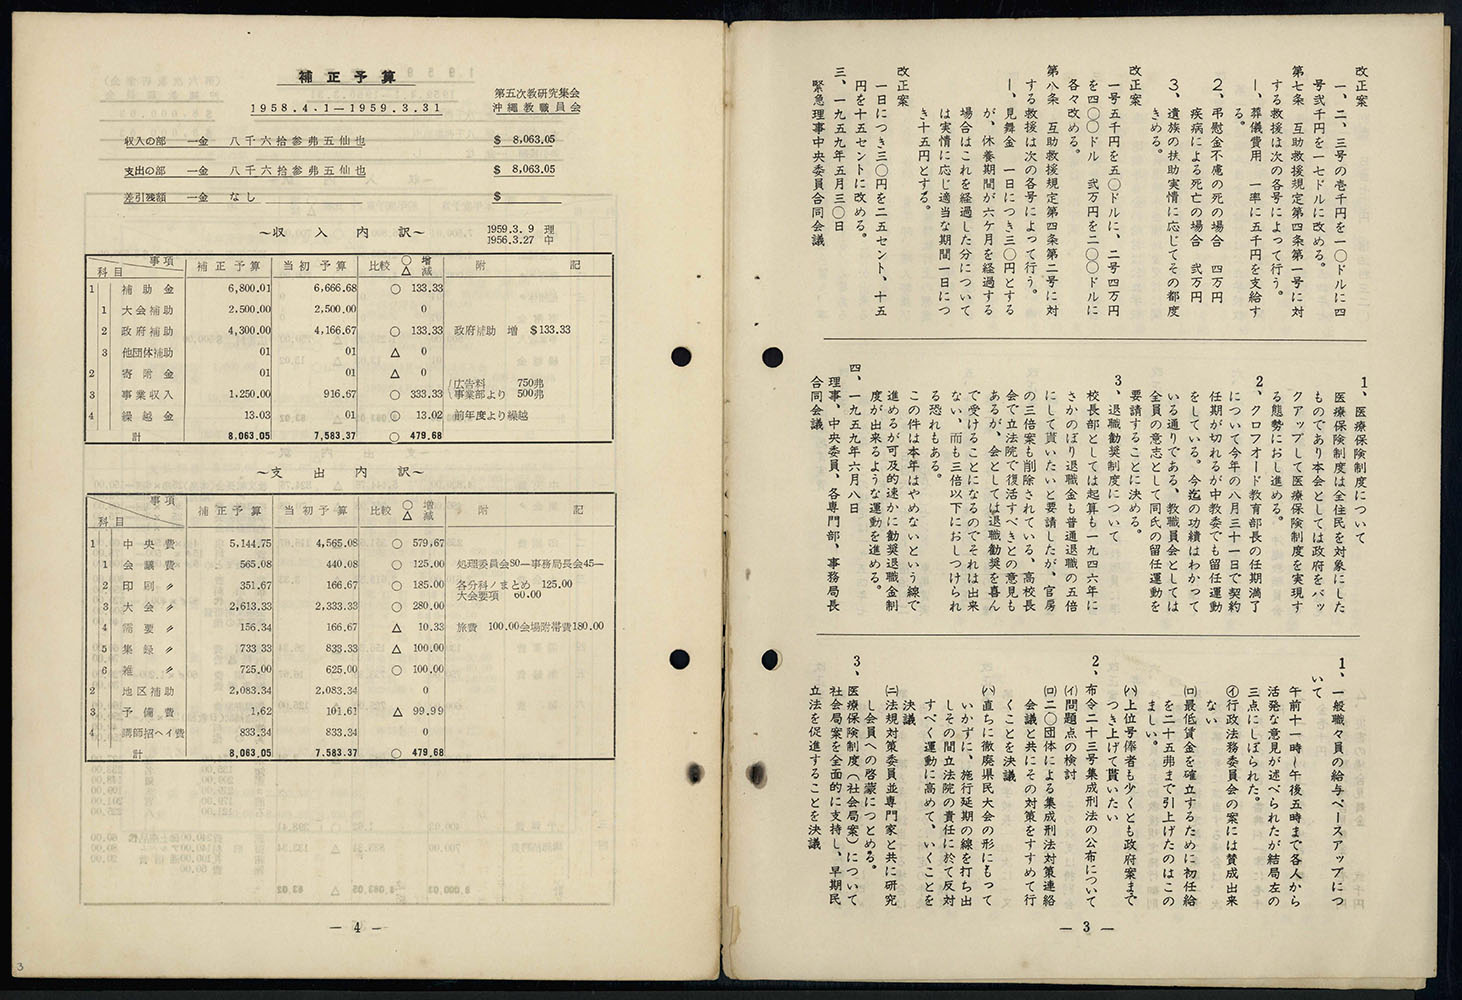 改正案
一、二、三号の壱千円を一〇ドルに四
号弐千円を一七ドルに改める。
第七条　互助救援規定第四条第一号に対
する救援は次の各号によって行う。
1、葬儀費用　一率に五千円を支給す
る。
2、弔慰金不慮の死の場合　四万円
疾病による死亡の場合　弐万円
3、遺族の扶助実情に応じてその都度
きめる。
改正案
一号五千円を五〇ドルに、二号四万円
を四〇〇ドル　弐万円を二〇〇ドルに
各々改める。
第八条　互助救援規定第四条第二号に対
する救援は次の各号によって行う。
1、見舞金　一日につき三〇円とする
が、休養期間が六ケ月を経過する
場合はこれを経過した分について
は実情に応じ適当な期間一日につ
き十五円とする。
改正案
一日につき三〇円を二五セント、十五
円を十五セントに改める。
三、一九五九年五月三〇日
緊急理事中央委員合同会議
1、医療保険制度について
医療保険制度は全住民を対象にした
ものであり本会としては政府をバッ
クアップして医療保険制度を実現す
る態勢におし進める。
2、クロフオード教育部長の任期満了
について今年の八月三十一日で契約
任期が切れるが中教委でも留任運動
をしている。今迄の功績はわかって
いる通りである、教職員会としては
全員の意志として同氏の留任運動を
要請することに決める。
3、退職勧奨制度について
校長部としては起算も一九四六年に
さかのぼり退職金も普通退職の五倍
にして貰いたいと要請したが、官房
の三倍案も削除されている。高校長
会で立法院で復活すべきとの意見も
あるが、会としては退職勧奨を喜ん
で受けることになるのでそれは出来
ない、而も三倍以下におしつけられ
る恐れもある。
この件は本年はやめないという線で
進めるが可及的速かに勧奨退職金制
度が出来るような運動を進める。
四、一九五九年六月八日
理事、中央委員、各専門部、事務局長
合同会議
1、一般職々員の給与ベースアップにつ
いて
午前十一時～午後五時まで各人から
活発な意見が述べられたが結局左の
三点にしぼられた。
㋑行政法務委員会の案には賛成出来
ない
㈺最低賃金を確立するために初任給
を二十五弗まで引上げたのはこの
ましい。
㈧上位号俸者も少くとも政府案まで
つき上げて貰いたい
2、布令二十三号集成刑法の公布について
(イ)問題点の検討
(ロ)二〇団体による集成刑法対策連絡
会議と共にその対策をすすめて行
くことを決議
(ハ)直ちに撤廃県民大会の形にもって
いかずに、施行延期の線を打ち出
しその間立法院の責任に於て反対
すべく運動に高めて、いくことを
決議
(ニ)法規対策委員並専門家と共に研究
し会員への啓蒙につとめる。
3、医療保険制度（社会局案）について
社会局案を全面的に支持し、早期民
立法を促進することを決議
— 3 —
補正予算
1958.4.1—1959.3.31
第五次教研究集会
沖縄教職員会
収入の部　一金　八千六拾参弗五仙也　$ 8,063.05
支出の部　一金　八千六拾参弗五仙也　$ 8,063.05
差引残額　一金　なし　$
～収入内訳～
1959.3.9 理
1956.3.27 中
科目　事項　補正予算　当初予算　比較　○増△減　附記
1　補助金　6,800.01　6,666.68　○ 133.33
1　大会補助　2.500.00　2,500.00　0
2　政府補助　4,300.00　4,166.67　○ 133.33　政府補助　増　$133.33
3　他団体補助　01　01　△ 0
2　寄附金　01　01　△ 0
3　事業収入　1,250.00　916.67　○ 333.33　広告料　750弗
事業部より　500弗
4　繰越金　13.03　01　○ 13.02　前年度より繰越
計　8,063.05　7,583.37　○ 479.68
～支出内訳～
科目　事項　補正予算　当初予算　比較　○増△減　附記
1　中央費　5,144.75　4,565.08　○ 579.67
1　会議費　565.08　440.08　○ 125.00　処理委員会80—事務局長会45—
2　印刷〃　351.67　166.67　○ 185.00　各分科ノまとめ　125.00
大会要項　60.00
3　大会〃　2,613.33　2,333.33　○ 280.00
4　需要〃　156.34　166.67　△ 10.33　旅費　100.00会場附帯費180.00
5　集録〃　733 33　833.33　△ 100.00
6　雑〃　725.00　625.00　○ 100.00
2　地区補助　2,083.34　2,083.34　0
3　予備費　1.62　101.61　△ 99.99
4　講師招ヘイ費　833.34　833.34　0
計　8,063.05　7.583.37　○ 479.68
— 4 —
3